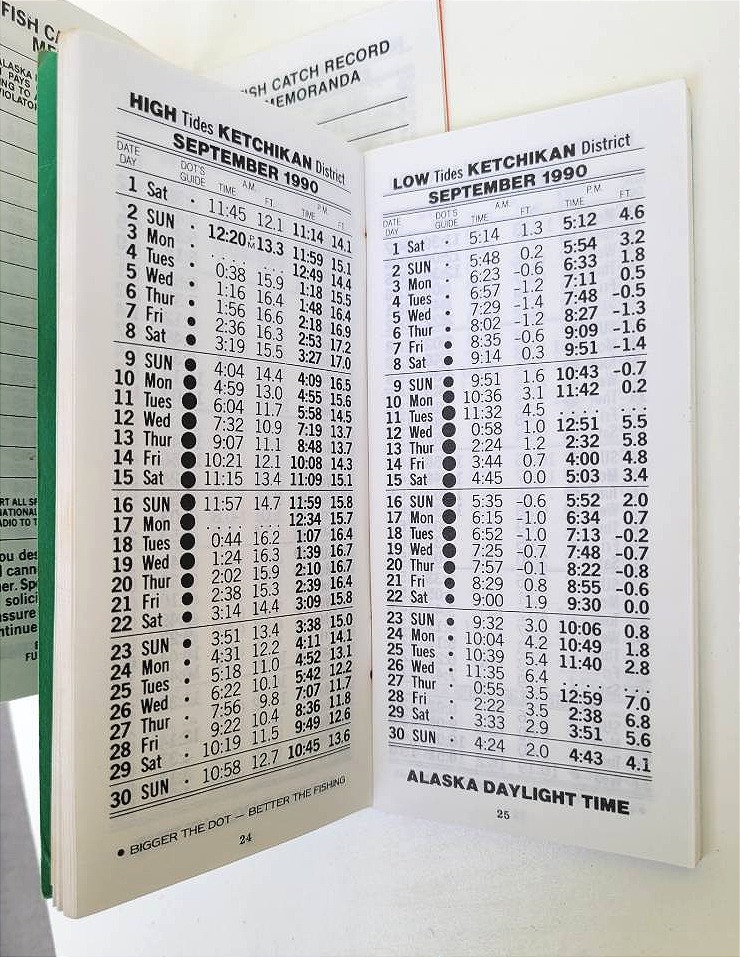 FISH CA
ME
ALASKA
PAYS
ING TO A
VIOLATOR
ISH CATCH RECORD
MEMORANDA
RT ALL SP
NATIONAL
ADIO TO T
ou des
cann
er. Spo
solici
assure
ntinue
FU
HIGH Tides KETCHIKAN District
SEPTEMBER 1990
DATE DAY DOT'S GUIDE A.M. TIME FT. P.M. TIME FT.
1 Sat • 11:45 12.1 11:14 14.1
2 SUN • 12:20 PM 13.3 11:59 15.1
3 Mon • . . . . . . 12:49 14.4
4 Tues • 0:38 15.9 1:18 15.5
5 Wed • 1:16 16.4 1:48 16.4
6 Thur • 1:56 16.6 2:18 16.9
7 Fri • 2:36 16.3 2:53 17.2
8 Sat • 3:19 15.5 3:27 17.0
9 SUN • 4:04 14.4 4:09 16.5
10 Mon • 4:59 13.0 4:55 15.6
11 Tues • 6:04 11.7 5:58 14.5
12 Wed • 7:32 10.9 7:19 13.7
13 Thur • 9:07 11.1 8:48 13.7
14 Fri • 10:21 12.1 10:08 14.3
15 Sat • 11:15 13.4 11:09 15.1
16 SUN • 11:57 14.7 11:59 15.8
17 Mon • . . . . . . . 12:34 15.7
18 Tues • 0:44 16.2 1:07 16.4
19 Wed • 1:24 16.3 1:39 16.7
20 Thur • 2:02 15.9 2:10 16.7
21 Fri • 2:38 15.3 2:39 16.4
22 Sat • 3:14 14.4 3:09 15.8
23 SUN • 3:51 13.4 3:38 15.0
24 Mon • 4:31 12.2 4:11 14.1
25 Tues • 5:18 11.0 4:52 13.1
26 Wed • 6:22 10.1 5:42 12.2
27 Thur • 7:56 9.8 7:07 11.7
28 Fri • 9:22 10.4 8:36 11.8
29 Sat • 10:19 11.5 9:49 12.6
30 SUN • 10:58 12.7 10:45 13.6
• BIGGER THE DOT — BETTER THE FISHING
24
LOW Tides KETCHIKAN District
SEPTEMBER 1990
DATE DAY DOT'S GUIDE A.M. TIME FT. P.M. TIME FT.
1 Sat • 5:14 1.3 5:12 4.6
2 SUN • 5:48 0.2 5:54 3.2
3 Mon • 6:23 -0.6 6:33 1.8
4 Tues • 6:57 -1.2 7:11 0.5
5 Wed • 7:29 -1.4 7:48 -0.5
6 Thur • 8:02 -1.2 8:27 -1.3
7 Fri • 8:35 -0.6 9:09 -1.6
8 Sat • 9:14 0.3 9:51 -1.4
9 SUN • 9:51 1.6 10:43 -0.7
10 Mon • 10:36 3.1 11:42 0.2
11 Tues • 11:32 4.5 . . . . . . .
12 Wed • 0:58 1.0 12:51 5.5
13 Thur • 2:24 1.2 2:32 5.8
14 Fri • 3:44 0.7 4:00 4.8
15 Sat • 4:45 0.0 5:03 3.4
16 SUN • 5:35 -0.6 5:52 2.0
17 Mon • 6:15 -1.0 6:34 0.7
18 Tues • 6:52 -1.0 7:13 -0.2
19 Wed • 7:25 -0.7 7:48 -0.7
20 Thur • 7:57 -0.1 8:22 -0.8
21 Fri • 8:29 0.8 8:55 -0.6
22 Sat • 9:00 1.9 9:30 0.0
23 SUN • 9:32 3.0 10:06 0.8
24 Mon • 10:04 4.2 10:49 1.8
25 Tues • 10:39 5.4 11:40 2.8
26 Wed • 11:35 6.4 . . . . . . .
27 Thur • 0:55 3.5 12:59 7.0
28 Fri • 2:22 3.5 2:38 6.8
29 Sat • 3:33 2.9 3:51 5.6
30 SUN • 4:24 2.0 4:43 4.1
ALASKA DAYLIGHT TIME
25